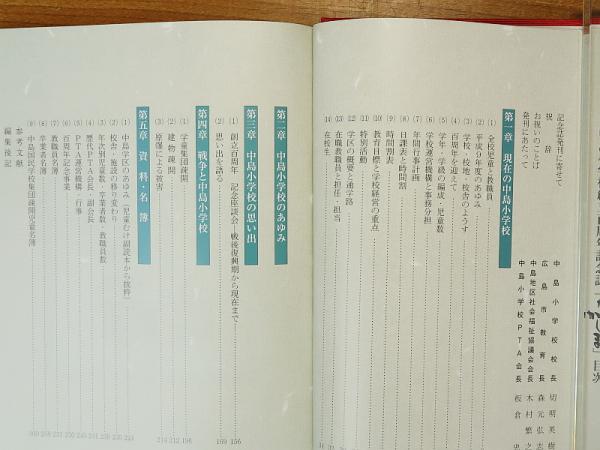 百周年記念誌「なかじま」目次
記念誌発刊に寄せて
祝辞
お祝いのことば
発刊にあたって
中島小学校校長 切明美樹
広島市教育長 森元弘志
中島地区社会福祉協議会会長 木村繁之
中島小学校PTA会長 板倉史
第一章 現在の中島小学校
(1) 全校児童と教職員
(2) 平成9年度のあゆみ
(3) 学校・校地・校舎のようす
(4) 百周年を迎えて
(5) 学年・学級の編成・児童数
(6) 学校運営機構と事務分担
(7) 年間行事計画
(8) 日課表と時間割
(9) 時間割表
(10) 教育目標と学校経営の重点
(11) 特別活動
(12) 学区の概要と通学路
(13) 在職教職員と担任・担当
(14) 在校生
第二章 中島小学校のあゆみ
第三章 中島小学校の思い出
(1) 創立百周年 記念座談会・戦後復興期から現在まで 156
(2) 思い出を語る 169
第四章 戦争と中島小学校
(1) 学童集団疎開 196
(2) 建物疎開 212
(3) 原爆による被害 214
第五章 資料・名簿
(1) 中島学区のあゆみ(児童むけ副読本から抜粋)
(2) 校舎・施設の移り変わり
(3) 年次別児童数・卒業者数・教職員数
(4) 歴代PTA会長・副会長
(5) PTA運営機構・行事
(6) 百周年記念事業
(7) 教職員名簿
(8) 卒業者名簿
(9) 中島国民学校集団疎開児童名簿
参考文献
編集後記